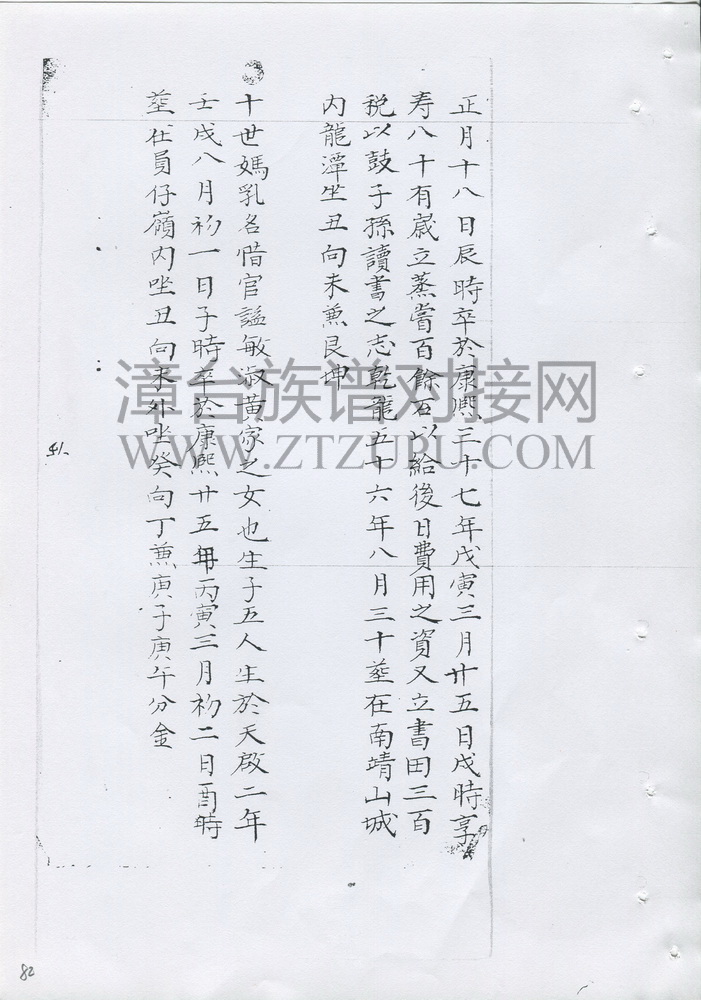 正月十八日辰時卒於康熙三十七年戊寅三月廿五日戌時享
寿八十有歲立蒸嘗百餘石以給後日費用之資又立書田三百
税以鼓子孫讀書之志乾龍五十六年八月三十葬在南靖山城
内龍潭坐丑向未兼艮坤
十世媽乳名惜官謚敏淑黄家之女也生子五人生於天啟二年
壬戌八月初一日子時卒於康熙廿五年丙寅三月初二日酉時
葬在員仔嶺内坐丑向未外坐癸向丁兼庚子庚午分金
漳台族谱对接网
WWW.ZTZUPU.COM
82